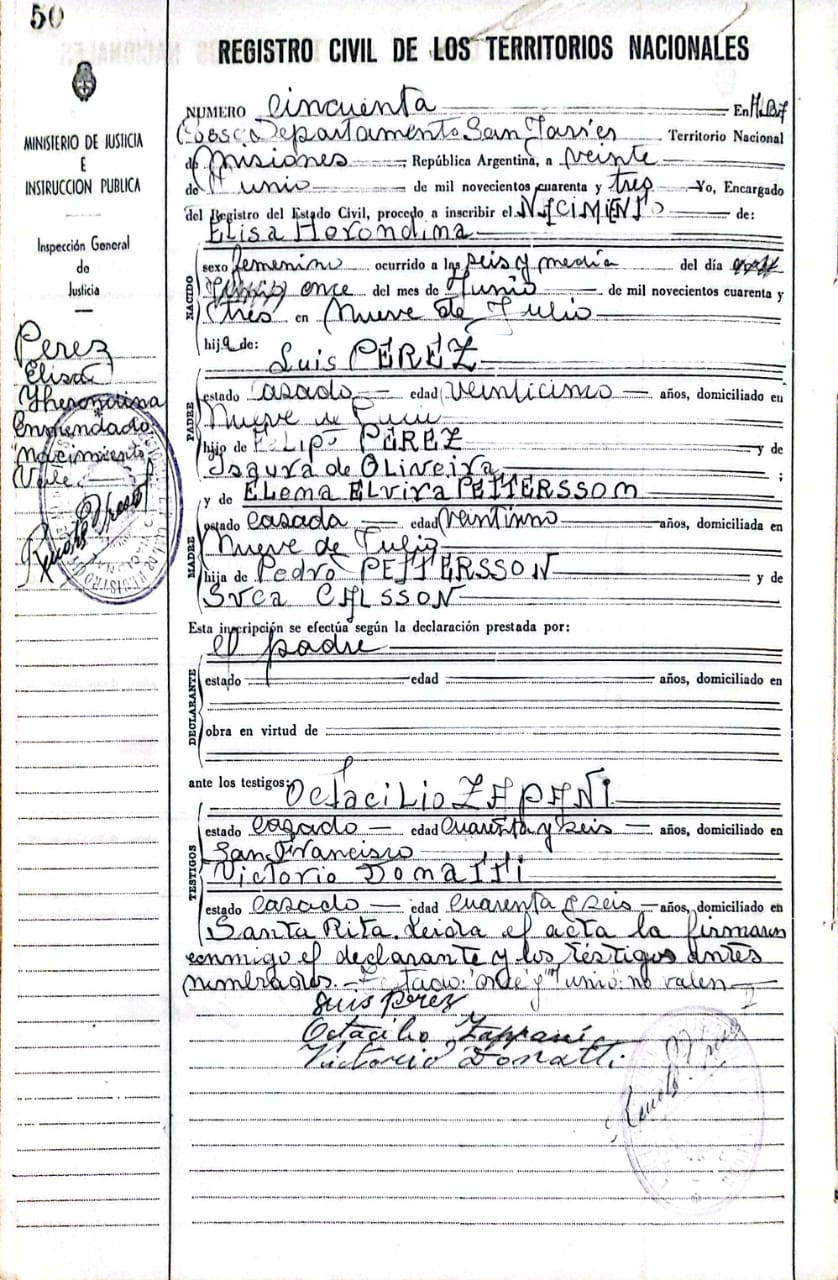 50
REGISTRO CIVIL DE LOS TERRITORIOS NACIONALES
MINISTERIO DE JUSTICIA
E
INSTRUCCION PUBLICA
Inspección General
de
Justicia
Perez
Elisa
Enmendado
"nacimiento"
Vale.
NUMERO Cincuenta En
Departamento San Javier Territorio Nacional
de Misiones República Argentina, a veinte
de Junio de mil novecientos cuarenta y tres Yo, Encargado
del Registro del Estado Civil, procedo a inscribir el NACIMIENTO de:
Elisa Herondina
NACIDO
sexo femenino ocurrido a las seis y media del día
once del mes de Junio de mil novecientos cuarenta y
tres en Nueve de Julio
hija de:
Luis PÉREZ
PADRE
estado casado edad veinticinco años, domiciliado en
Nueve de Julio
hijo de Felipe PÉREZ y de
Isaura de Oliveira ;
y de ELENA ELVIRA PETTERSSON
MADRE
estado casada edad veintiuno años, domiciliada en
Nueve de Julio
hija de Pedro PETTERSSON y de
CALSSON
Esta inscripción se efectúa según la declaración prestada por:
el padre
DECLARANTE
estado edad años, domiciliado en
obra en virtud de
ante los testigos: Octacilio ZAPANI
TESTIGOS
estado casado edad cuarenta y seis años, domiciliado en
San Francisco
Victorio Donatti
estado casado edad cuarenta y seis años, domiciliado en
Santa Rita. Leida el acta la firmaron
conmigo el declarante y los testigos antes
nombrados. Testado: "once" y "Junio": no valen
Luis Perez
Octacilio Zappani
Victorio Donatti